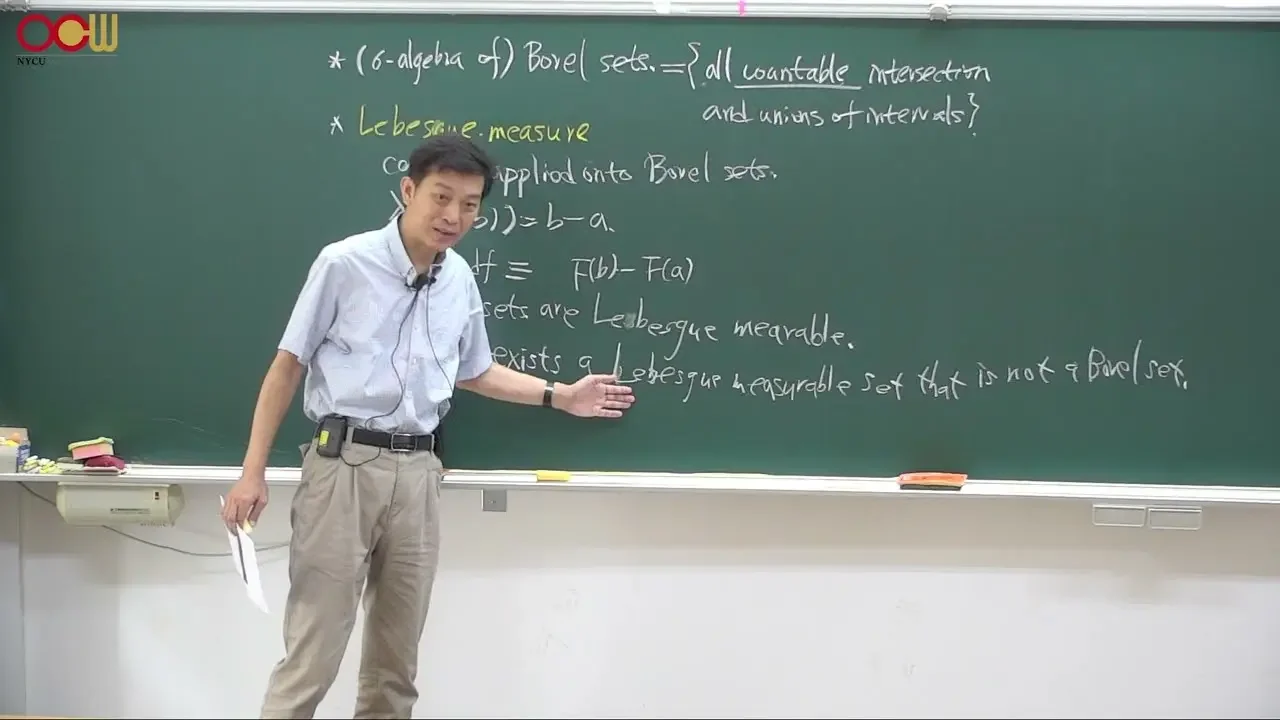 OCW
NYCU
* (σ-algebra of) Borel sets. = {all countable intersection
and unions of intervals}
* Lebesgue measure
co applied onto Borel sets.
b)) = b-a.
df ≡ F(b) - F(a)
sets are Lebesgue mearable.
exists a Lebesgue measurable set that is not a Borel set.